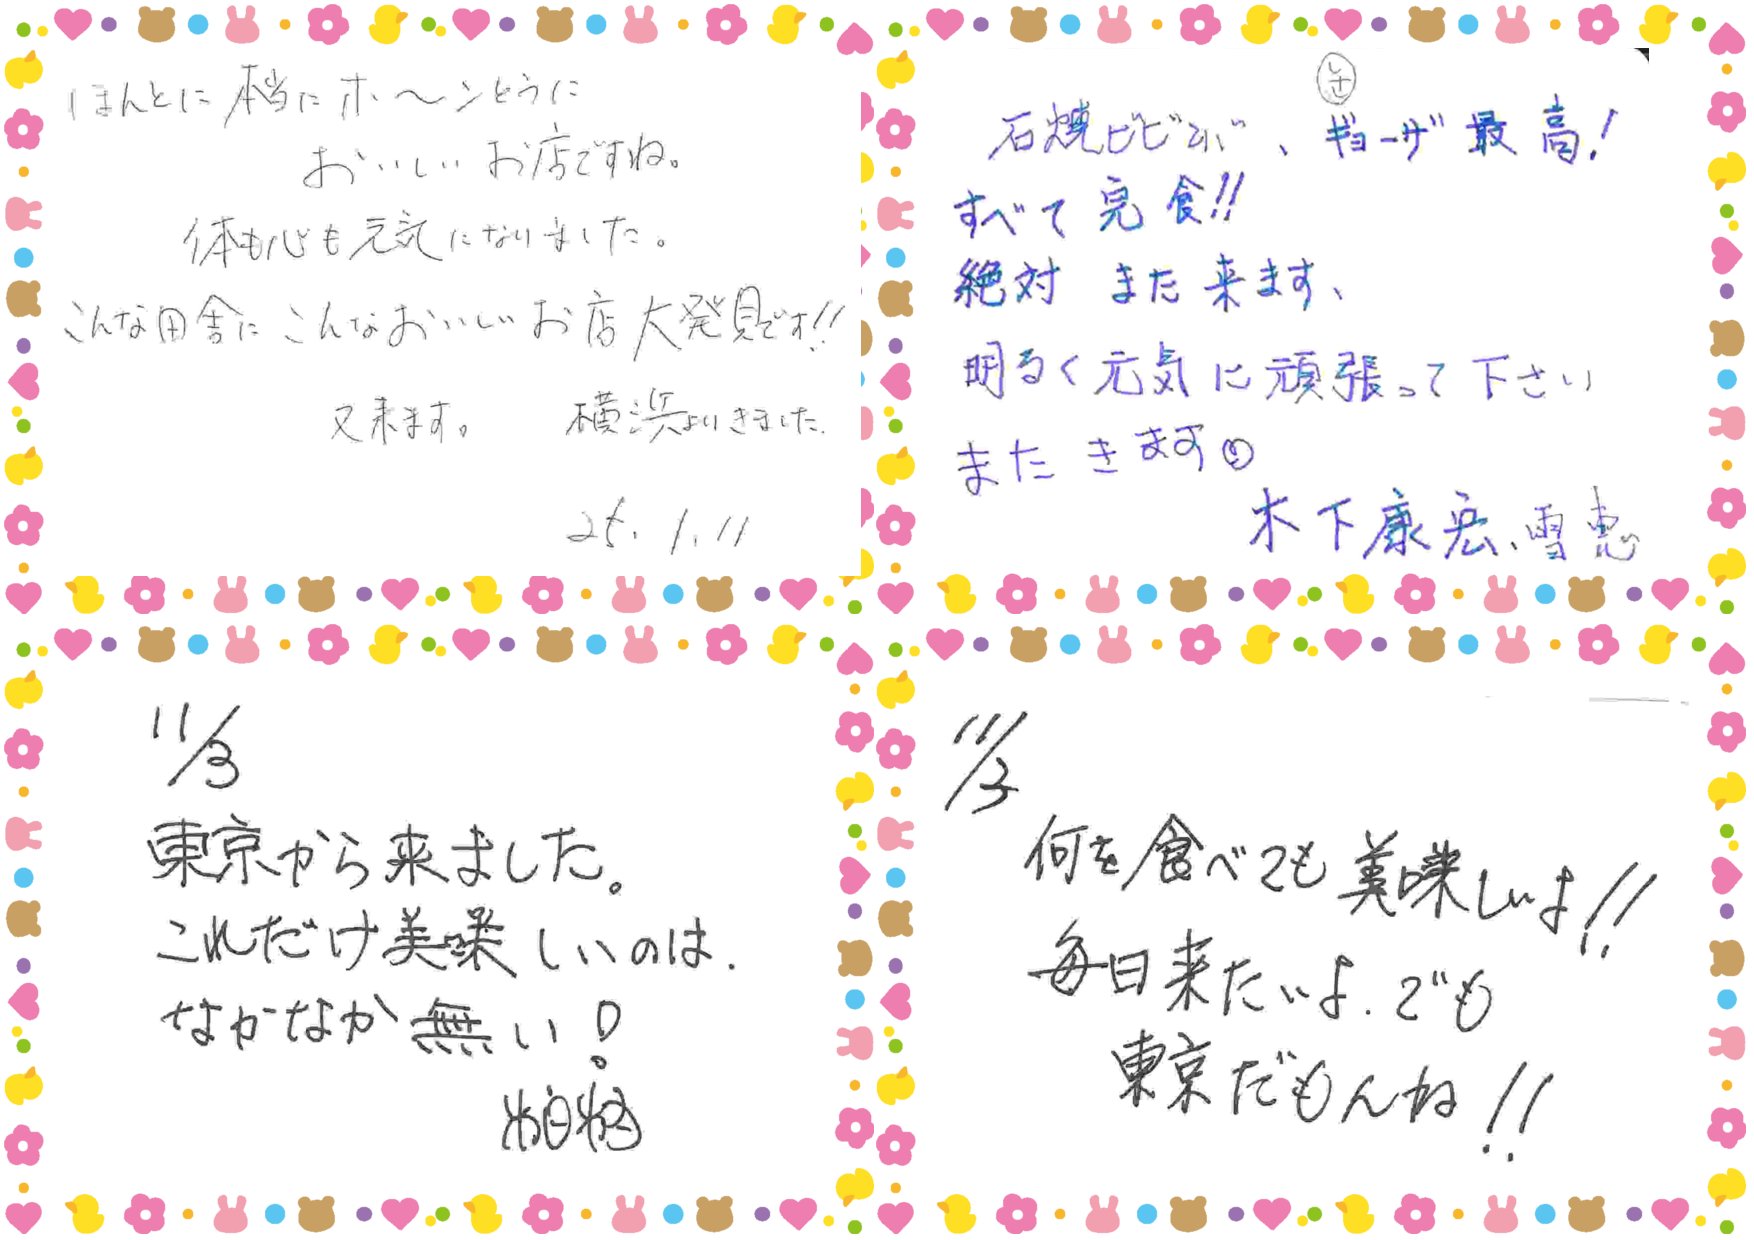 ほんとに 本当に ホ〜ンとうに
おいしい お店ですね。
体も心も元気になりました。
こんな田舎に こんなおいしい お店 大発見です!!
又来ます。 横浜よりきました.
25.1.11
石焼ビビンバ、ギョーザ 最高!
すべて 完食!!
絶対 また来ます、
明るく元気に頑張って下さい
また きます
木下康宏、雪恵
11/3
東京から来ました。
これだけ美味しいのは.
なかなか無い!
11/3
何を食べても美味しいよ!!
毎日来たいよ.でも
東京だもんね!!